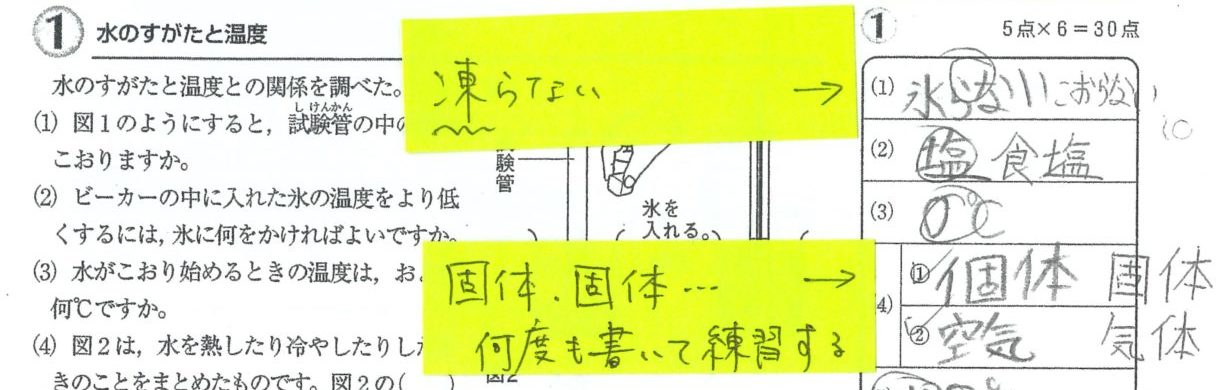 1 水のすがたと温度
水のすがたと温度との関係を調べた。
(1) 図1のようにすると，試験管の中の
しけんかん
こおりますか。
(2) ビーカーの中に入れた氷の温度をより低
くするには，氷に何をかければよいですか。
(3) 水がこおり始めるときの温度は，およ
何℃ですか。
(4) 図2は，水を熱したり冷やしたりした
きのことをまとめたものです。図2の(　　)
凍らない →
験管
氷を
入れる。
固体．固体… →
何度も書いて練習する
図2
1 5点×6＝30点
(1) 氷らない こおらない
(2) 塩 食塩
(3) 0℃
(4) ① 個体 固体
② 空気 気体